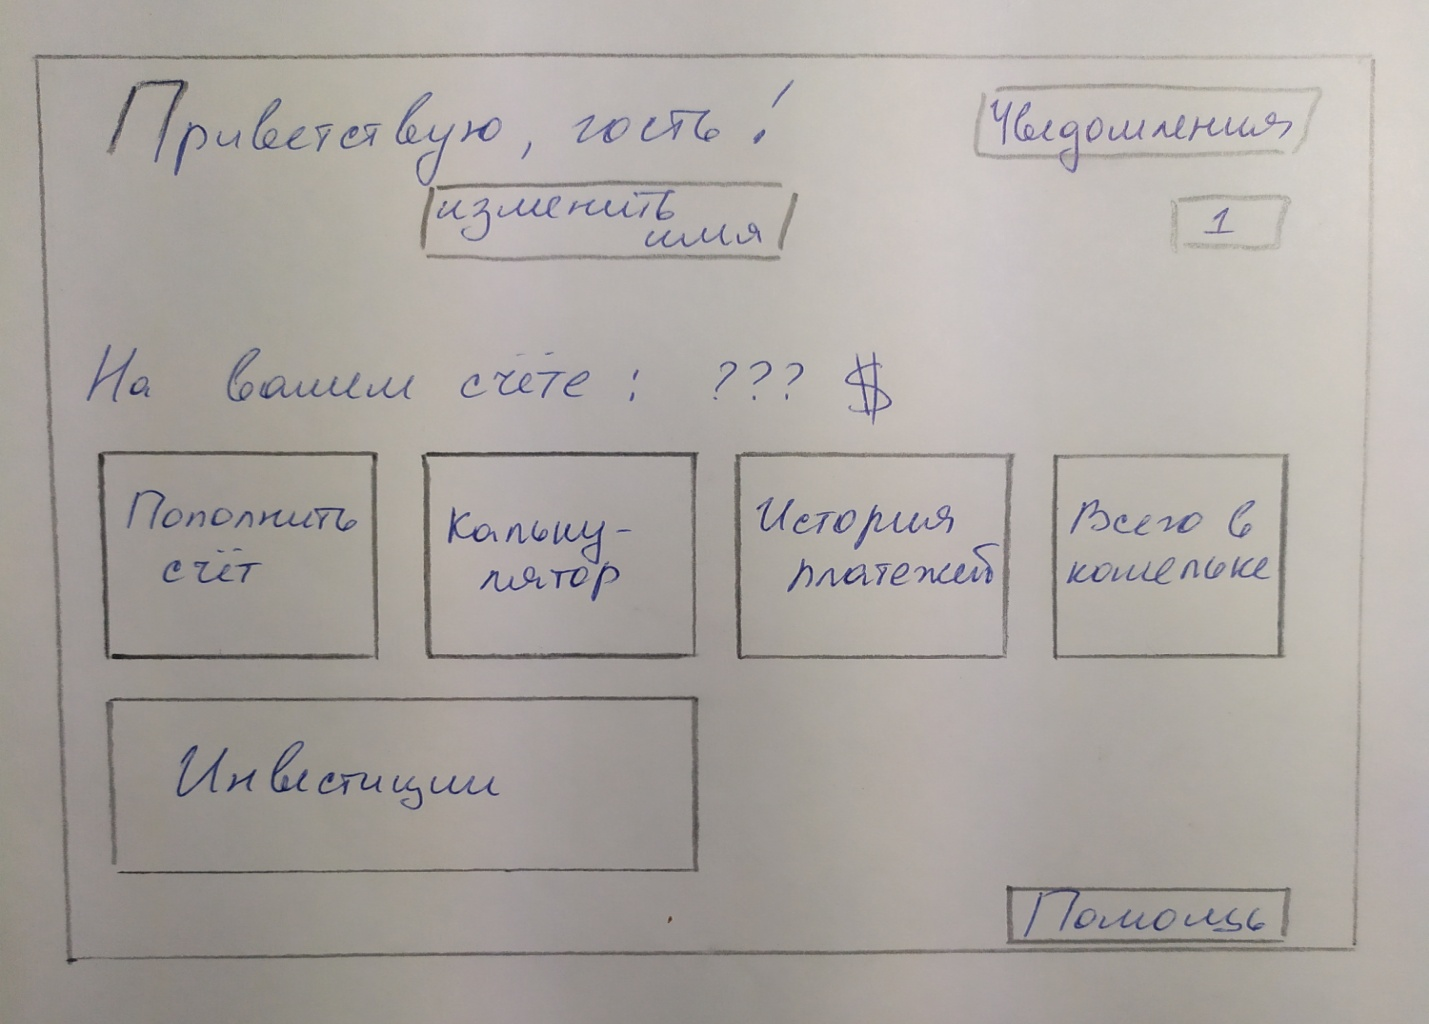 Приветствую, гость!
Уведомления
изменить
имя
1
На вашем счёте: ??? $
Пополнить
счёт
Кальку-
лятор
История
платежей
Всего в
кошельке
Инвестиции
Помощь